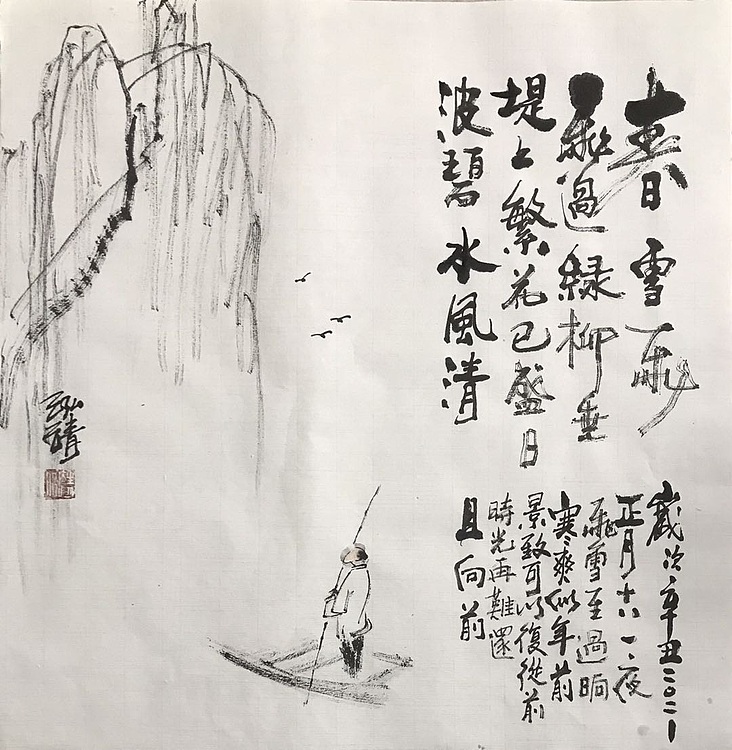 春日雪飛
飛過綠柳垂
堤上繁花已盛日
波碧水風清
歲次辛丑二〇二一
正月十六一夜
飛雪至過晌
寒爽似年前
景致可以復從前
時光再難還
且向前